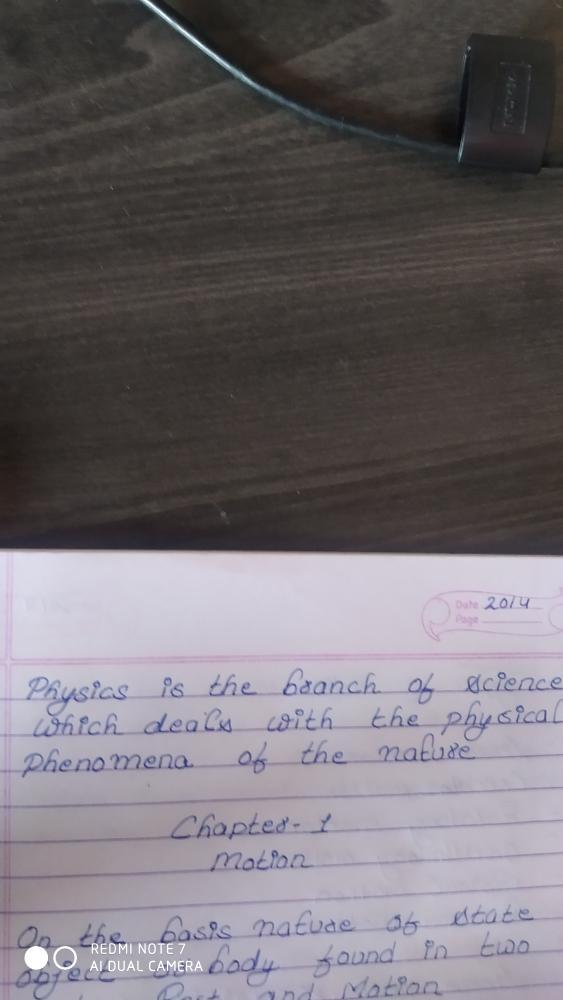 Date 20/4
Page
Physics is the branch of science
which deals with the physical
phenomena of the nature
Chapter-1
Motion
On the basis nature of state
object body found in two
Rest and Motion
REDMI NOTE 7
AI DUAL CAMERA